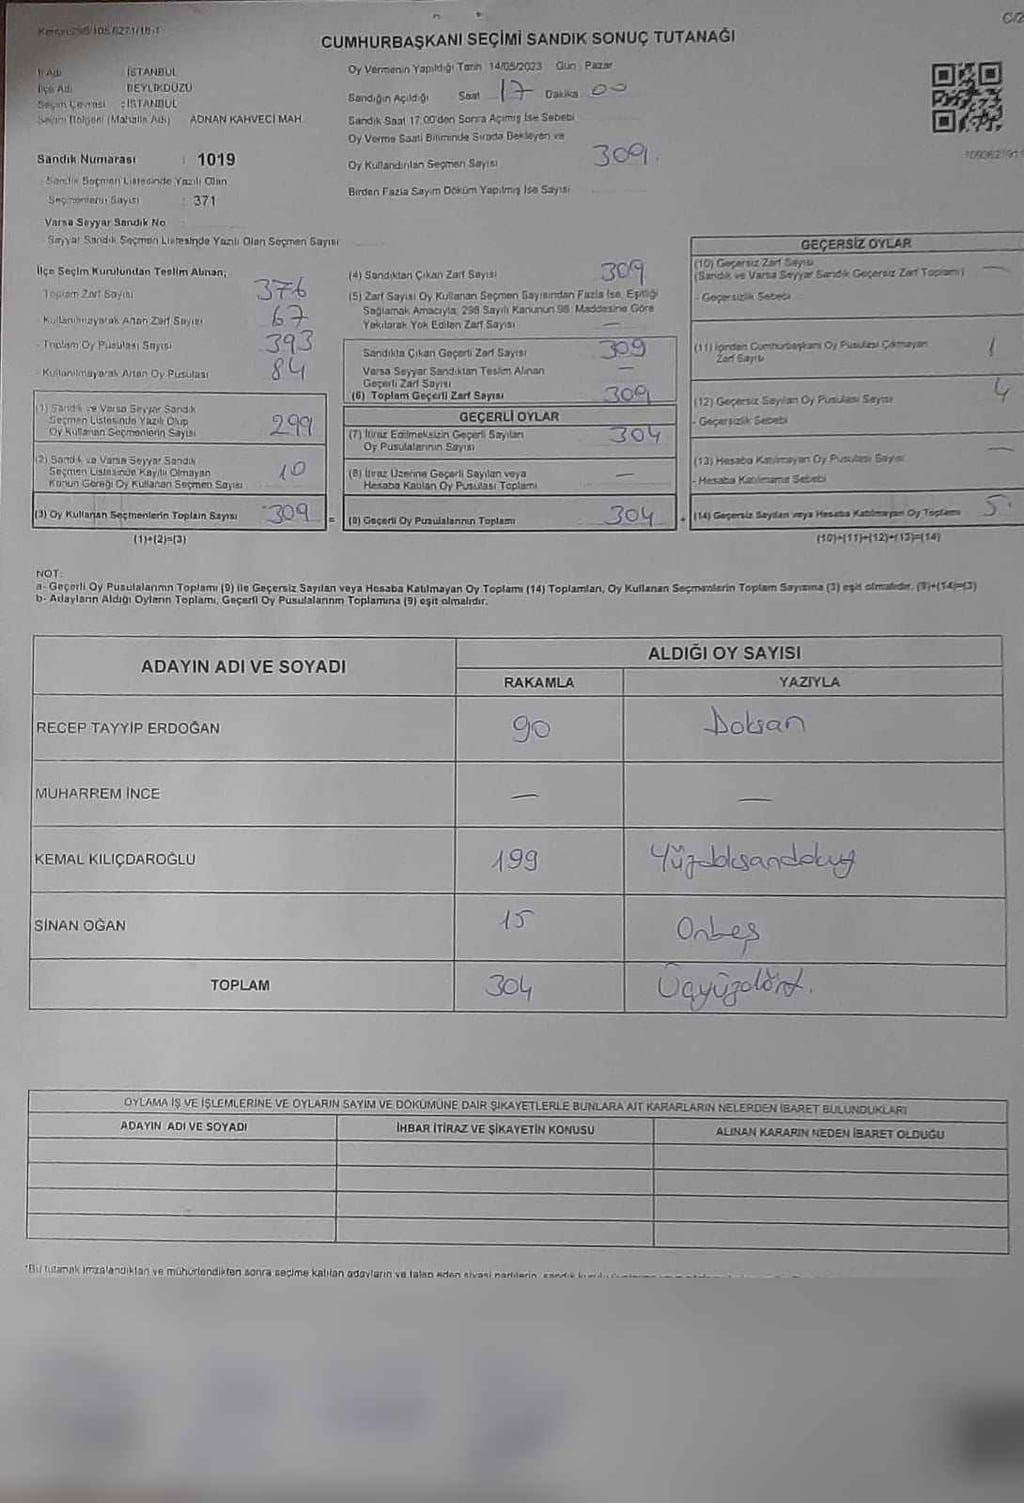 C/2
CUMHURBAŞKANI SEÇİMİ SANDIK SONUÇ TUTANAĞI
İl Adı : İSTANBUL
İlçe Adı : BEYLİKDÜZÜ
Seçim Çevresi : İSTANBUL
Seçim Bölgesi (Mahalle Adı) ADNAN KAHVECİ MAH.
Sandık Numarası : 1019
- Sandık Seçmen Listesinde Yazılı Olan
Seçmenlerin Sayısı : 371
Varsa Seyyar Sandık No :
- Seyyar Sandık Seçmen Listesinde Yazılı Olan Seçmen Sayısı
Oy Vermenin Yapıldığı Tarih 14/05/2023 Gün : Pazar
Sandığın Açıldığı Saat 17 Dakika 00
Sandık Saat 17:00'den Sonra Açımış İse Sebebi
Oy Verme Saati Bitiminde Sırada Bekleyen ve
Oy Kullandırılan Seçmen Sayısı 309.
Birden Fazla Sayım Döküm Yapılmış İse Sayısı
İlçe Seçim Kurulundan Teslim Alınan;
Toplam Zarf Sayısı 376
- Kullanılmayarak Artan Zarf Sayısı 67
- Toplam Oy Pusulası Sayısı 393
- Kullanılmayarak Artan Oy Pusulası 84
(1) Sandık ve Varsa Seyyar Sandık
Seçmen Listesinde Yazılı Olup
Oy Kullanan Seçmenlerin Sayısı 299
(2) Sandık ve Varsa Seyyar Sandık
Seçmen Listesinde Kayıtlı Olmayan
Kanun Gereği Oy Kullanan Seçmen Sayısı 10
(3) Oy Kullanan Seçmenlerin Toplam Sayısı 309 =
(1)+(2)=(3)
(4) Sandıktan Çıkan Zarf Sayısı 309
(5) Zarf Sayısı Oy Kullanan Seçmen Sayısından Fazla İse, Eşitliği
Sağlamak Amacıyla; 298 Sayılı Kanunun 98. Maddesine Göre
Yakılarak Yok Edilen Zarf Sayısı —
Sandıkta Çıkan Geçerli Zarf Sayısı 309
Varsa Seyyar Sandıktan Teslim Alınan
Geçerli Zarf Sayısı —
(6) Toplam Geçerli Zarf Sayısı 309
GEÇERLİ OYLAR
(7) İtiraz Edilmeksizin Geçerli Sayılan
Oy Pusulalarının Sayısı 304
(8) İtiraz Üzerine Geçerli Sayılan veya
Hesaba Katılan Oy Pusulası Toplamı —
(9) Geçerli Oy Pusulalarının Toplamı 304 +
GEÇERSİZ OYLAR
(10) Geçersiz Zarf Sayısı
(Sandık ve Varsa Seyyar Sandık Geçersiz Zarf Toplamı) —
- Geçersizlik Sebebi
(11) İçinden Cumhurbaşkanı Oy Pusulası Çıkmayan
Zarf Sayısı 1
(12) Geçersiz Sayılan Oy Pusulası Sayısı 4
- Geçersizlik Sebebi
(13) Hesaba Katılmayan Oy Pusulası Sayısı —
- Hesaba Katılmama Sebebi
(14) Geçersiz Sayılan veya Hesaba Katılmayan Oy Toplamı 5
(10)+(11)+(12)+(13)=(14)
NOT:
a- Geçerli Oy Pusulalarının Toplamı (9) ile Geçersiz Sayılan veya Hesaba Katılmayan Oy Toplamı (14) Toplamları, Oy Kullanan Seçmenlerin Toplam Sayısına (3) eşit olmalıdır. (9)+(14)=(3)
b- Adayların Aldığı Oyların Toplamı, Geçerli Oy Pusulalarının Toplamına (9) eşit olmalıdır.
ADAYIN ADI VE SOYADI ALDIĞI OY SAYISI
RAKAMLA YAZIYLA
RECEP TAYYİP ERDOĞAN 90 Doksan
MUHARREM İNCE — —
KEMAL KILIÇDAROĞLU 199 Yüzdoksandokuz
SİNAN OĞAN 15 Onbeş
TOPLAM 304 Üçyüzdört.
OYLAMA İŞ VE İŞLEMLERİNE VE OYLARIN SAYIM VE DÖKÜMÜNE DAİR ŞİKAYETLERLE BUNLARA AİT KARARLARIN NELERDEN İBARET BULUNDUKLARI
ADAYIN ADI VE SOYADI İHBAR İTİRAZ VE ŞİKAYETİN KONUSU ALINAN KARARIN NEDEN İBARET OLDUĞU
*Bu tutanak imzalandıktan ve mühürlendikten sonra seçime katılan adayların ve talep eden siyasi partilerin, sandık